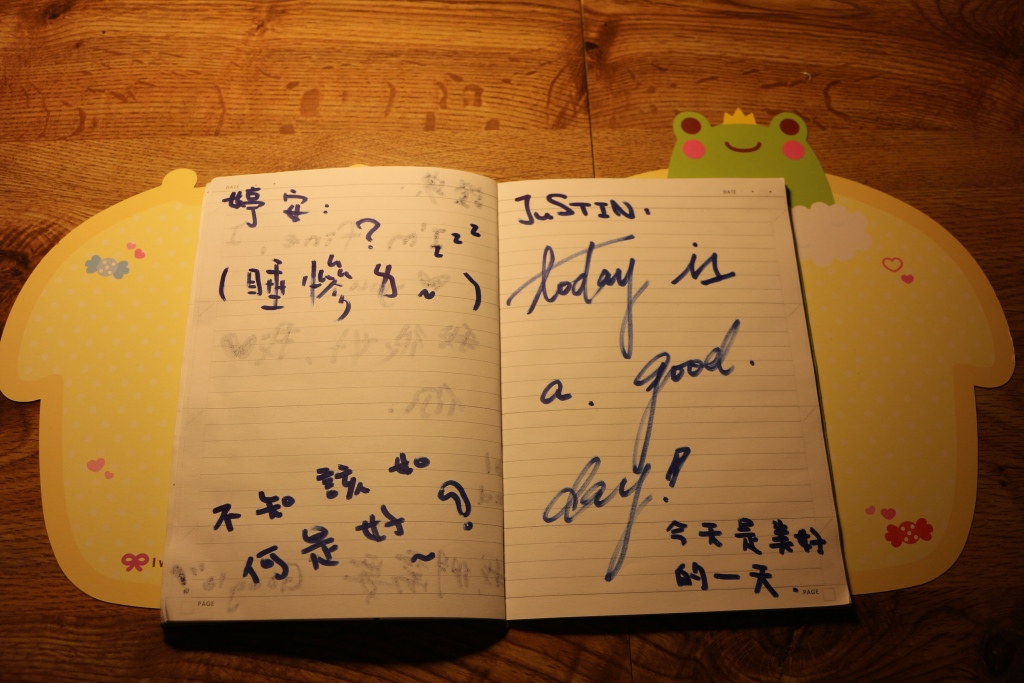 婷安:
?
zzz
(睡慘ㄌ~)
不知該如
何是好~?
JuSTIN.
today is
a. good.
day!
今天是美好
的一天.
PAGE
DATE
PAGE